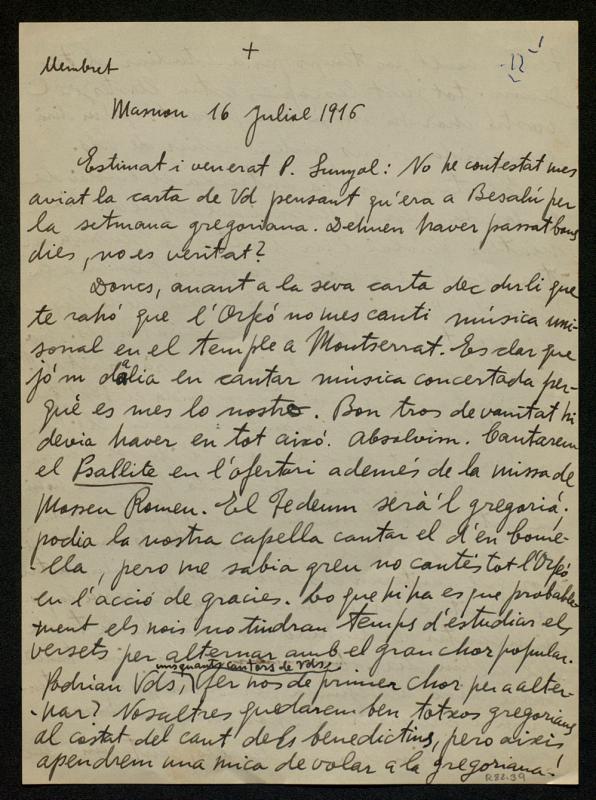 +
Membret
Masnou 16 Juliol 1916
Estimat i venerat P. Sunyol: No he contestat mes
aviat la carta de Vd pensant qu'era a Besalú per
la setmana gregoriana. Dehuen haver passat bons
dies, no es veritat?
Doncs, anant a la seva carta dec dirli que
te rahó que l'Orfeó no mes canti música uni-
sonal en el temple a Montserrat. Es clar que
jó'm dalia en cantar música concertada per-
què es mes lo nostre. Bon tros de vanitat hi
devia haver en tot aixó. Absolvim. Cantarem
el Psallite en l'ofertori además de la missa de
Mossen Romeu. El Tedeum será'l gregoriá;
podia la nostra capella cantar el d'en Come-
lla, pero me sabia greu no cantés tot l'Orfeó
en l'acció de gracies. Lo que hi ha es que probable-
ment els nois no tindran temps d'estudiar els
versets per alternar amb el gran chor popular.
Podrian Vds, uns quants cantors de Vds, fer nos de primer chor per a alter-
nar? Nosaltres quedarem ben totxos gregorians
al costat del cant dels benedictins, pero aixis
apendrem una mica de volar a la gregoriana!
R82.39